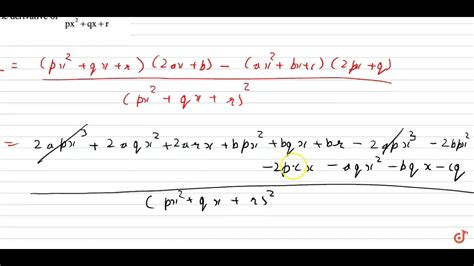 he derivative of px² + qx + r
= (px² + qx + r) (2ax + b) - (ax² + bx + c) (2px + q)
(px² + qx + r)²
= 2apx³ + 2aqx² + 2arx + bpx² + bqx + br - 2apx³ - 2bpx²
- 2pcx - aqx² - bqx - cq
(px² + qx + r)²